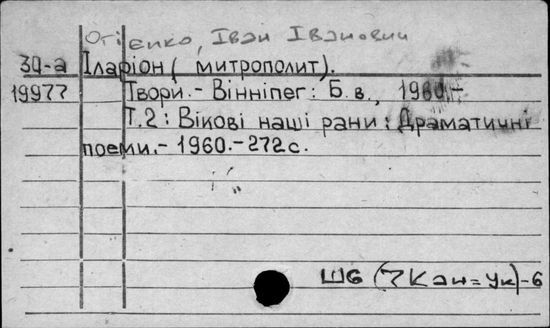 Огієнко, Іван Іванович
30-а Іларіон ( митрополит).
19977 Твори.- Вінніпег: Б.в., 1960.-
Т.2: Вікові наші рани: Драматичні
поеми.- 1960.-272с.
Ш6 (7Кан=Ук)-6